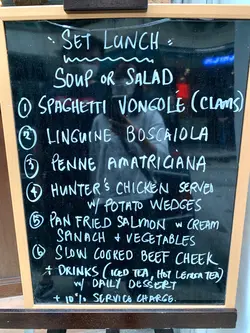 "SET LUNCH"
SOUP OR SALAD
① SPAGHETTI VONGOLE (CLAMS)
② LINGUINE BOSCAIOLA
③ PENNE AMATRICIANA
④ HUNTER'S CHICKEN SERVED
W/ POTATO WEDGES
⑤ PAN FRIED SALMON W CREAM
SPINACH + VEGETABLES
⑥ SLOW COOKED BEEF CHEEK
+ DRINKS (ICED TEA, HOT LEMON TEA)
W/ DAILY DESSERT
+ 10% SERVICE CHARGE.